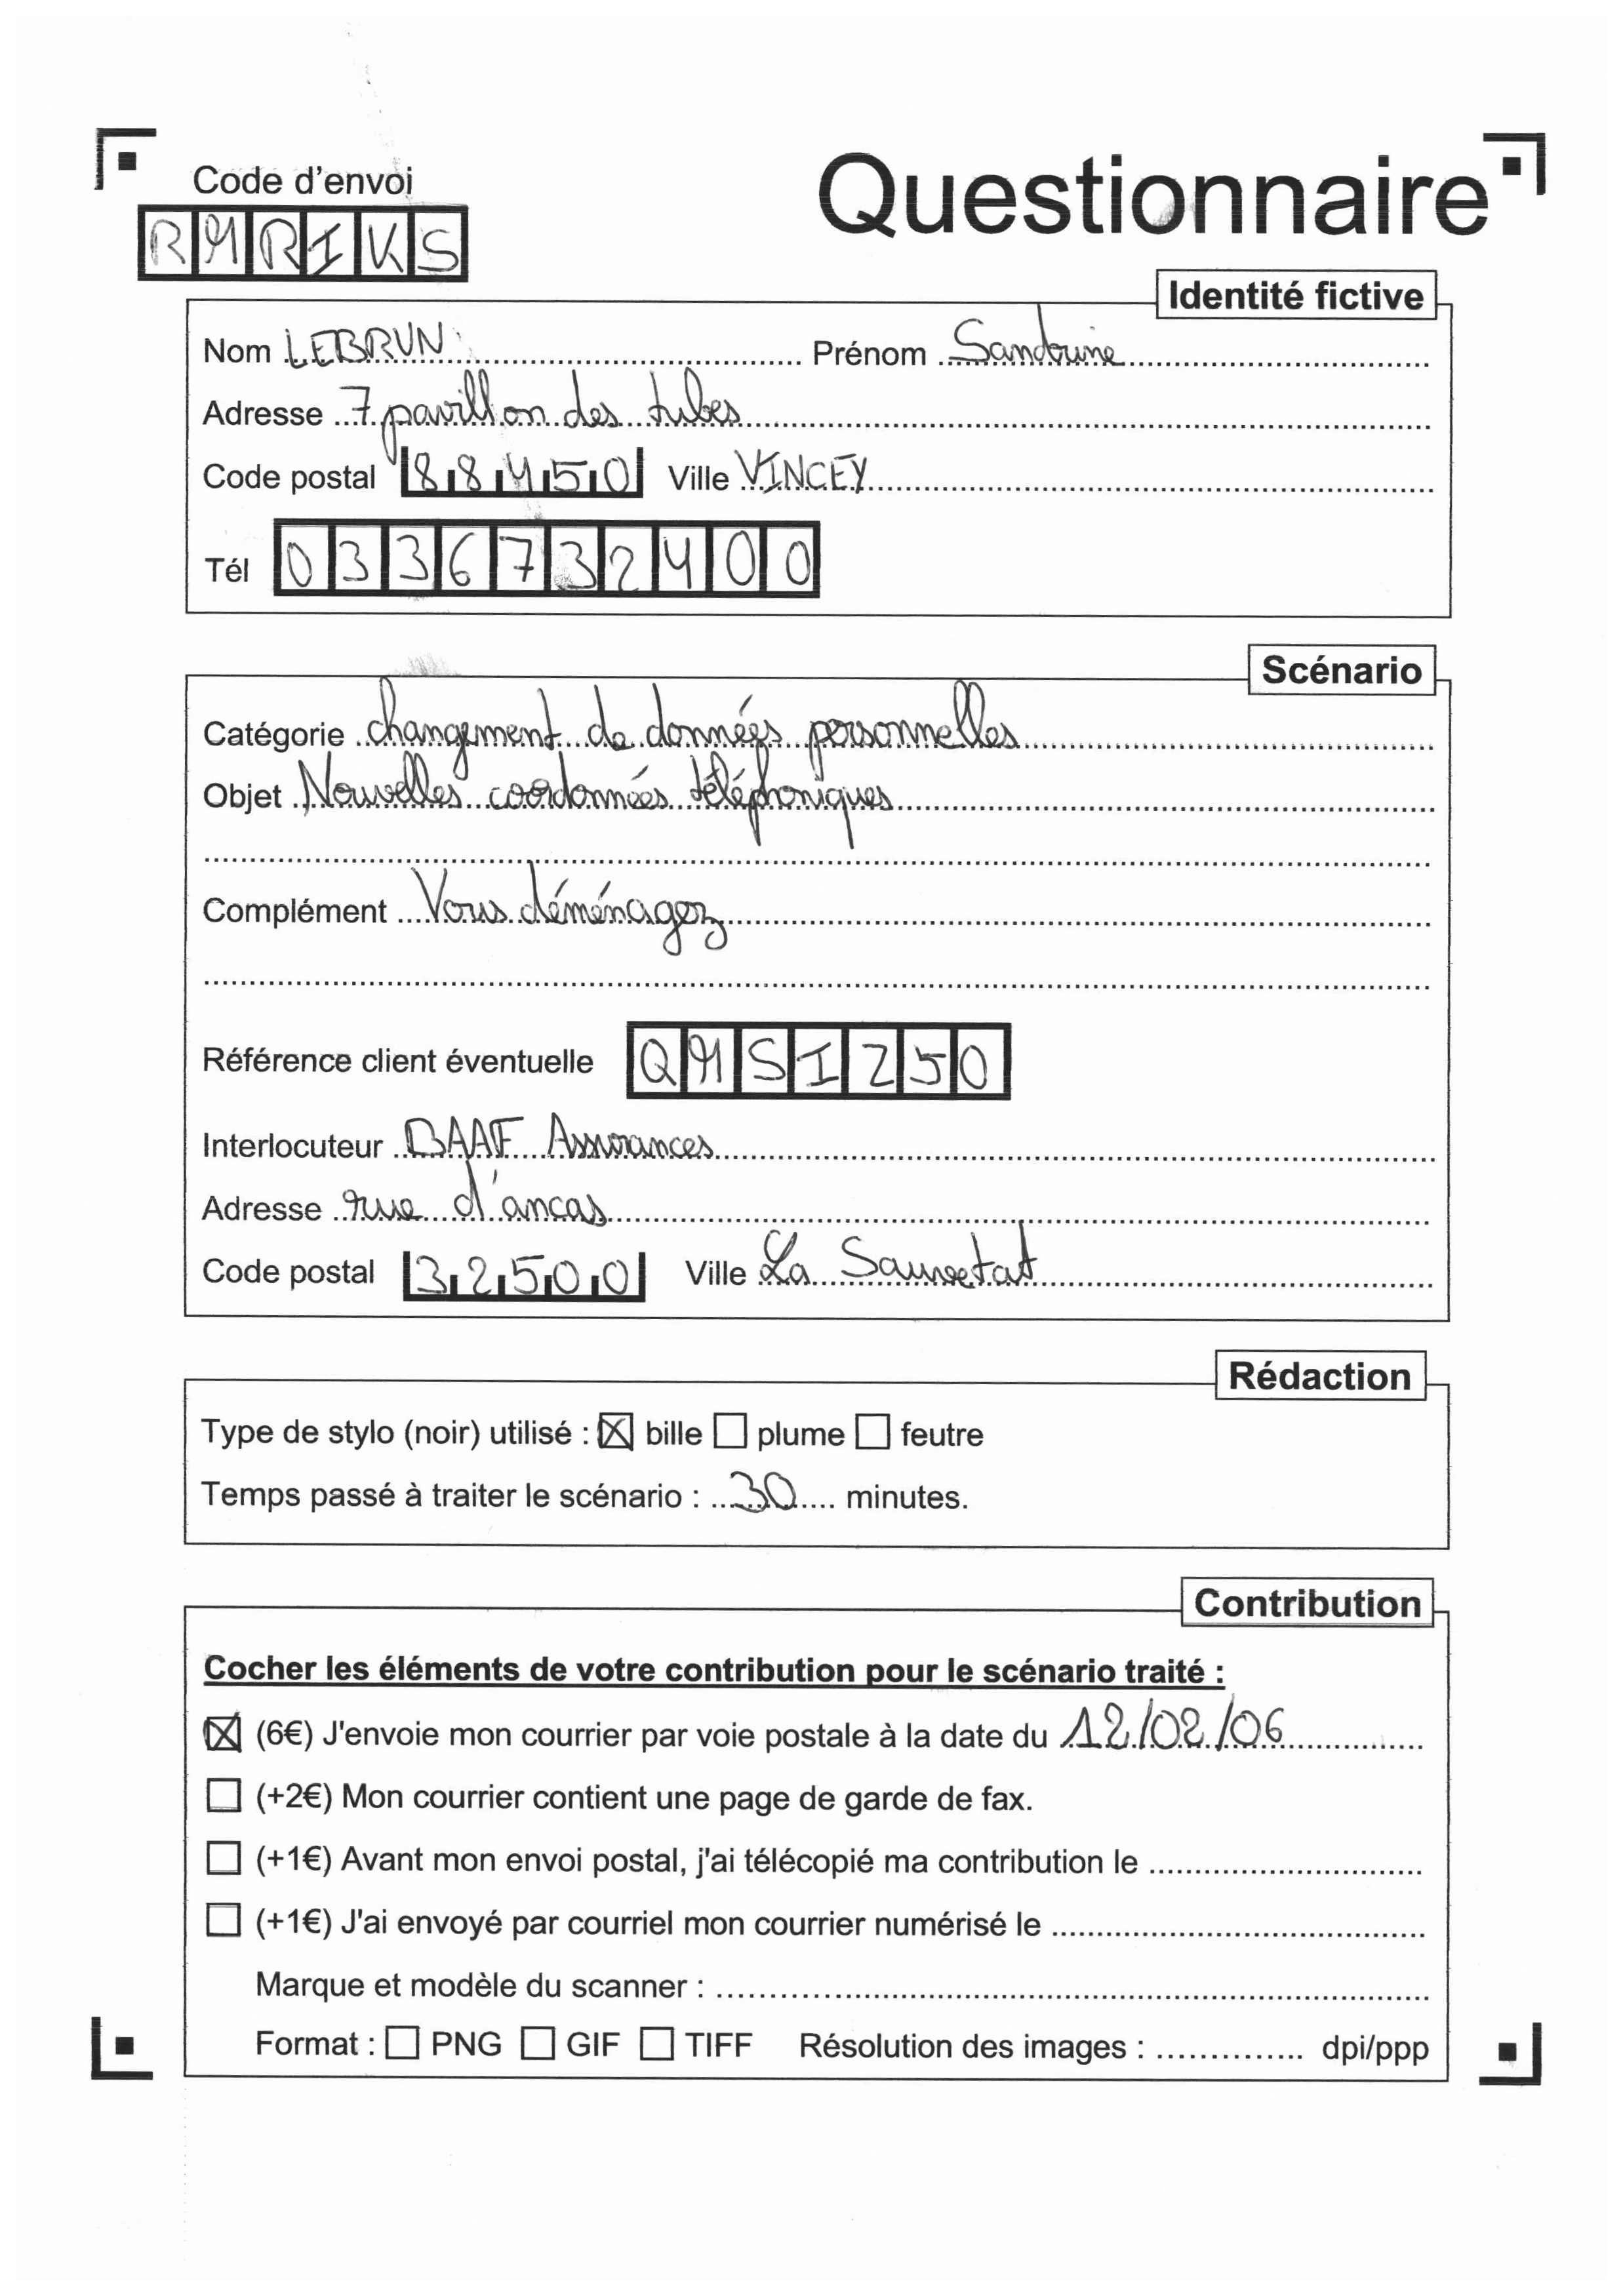 Code d'envoi
Questionnaire
RMRIKS
Identité fictive
Nom LEBRUN Prénom Sandrine
Adresse 7 pavillon des tubes
Code postal 88450 Ville VINCEY
Tél 0336732400
Scénario
Catégorie changement de données personnelles
Objet Nouvelles coordonnées téléphoniques
Complément Vous déménagez
Référence client éventuelle QMSIZ50
Interlocuteur BAAF Assurances
Adresse rue d'ancas
Code postal 32500 Ville La Sauvetat
Rédaction
Type de stylo (noir) utilisé : ☒ bille ☐ plume ☐ feutre
Temps passé à traiter le scénario : 30 minutes.
Contribution
Cocher les éléments de votre contribution pour le scénario traité :
☒ (6€) J'envoie mon courrier par voie postale à la date du 12/02/06
☐ (+2€) Mon courrier contient une page de garde de fax.
☐ (+1€) Avant mon envoi postal, j'ai télécopié ma contribution le
☐ (+1€) J'ai envoyé par courriel mon courrier numérisé le
Marque et modèle du scanner :
Format : ☐ PNG ☐ GIF ☐ TIFF Résolution des images : dpi/ppp